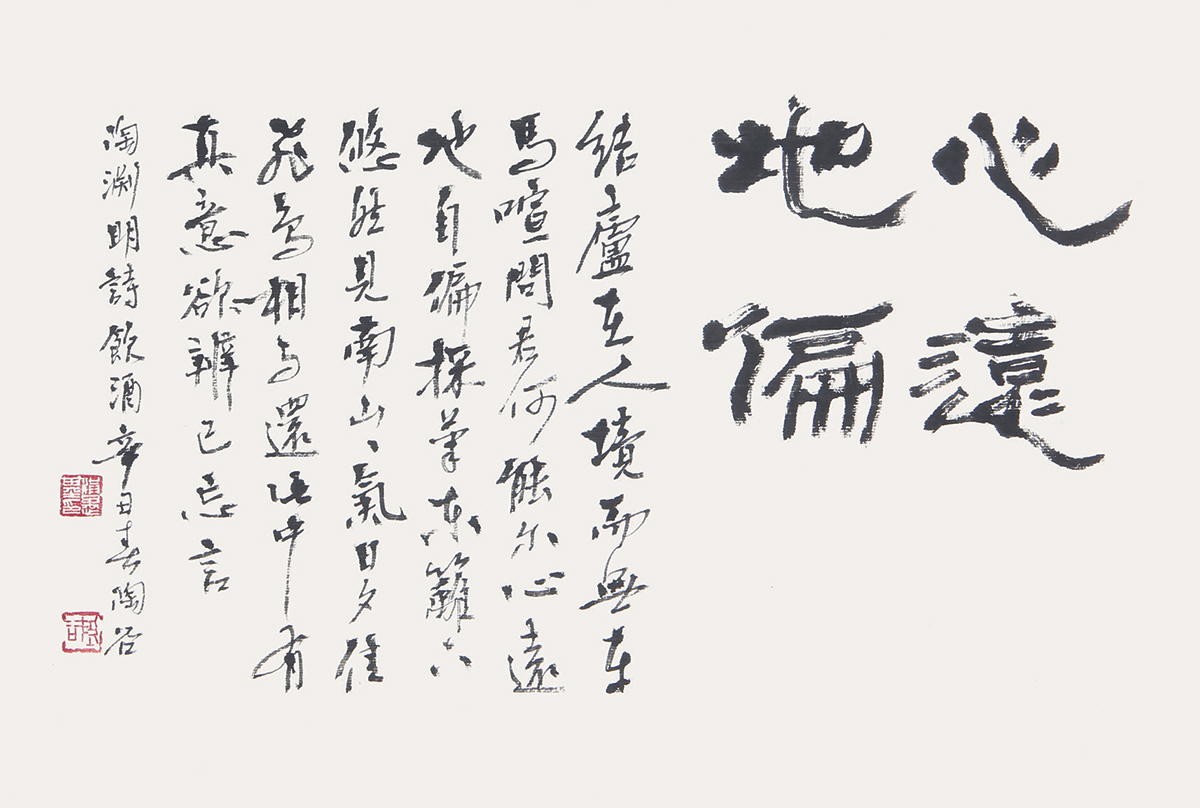 心遠
地偏
結廬在人境而無車
馬喧問君何能尔心遠
地自偏採菊東籬下
悠然見南山〻氣日夕佳
飛鳥相与還此中有
真意欲辨已忘言
陶淵明詩飲酒辛丑春陶谷